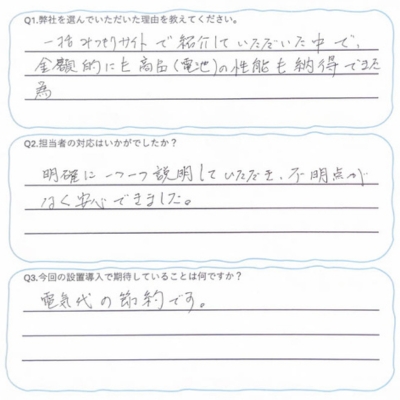 Q1.弊社を選んでいただいた理由を教えてください。
一括みつもりサイトで紹介していただいた中で、
金額的にも商品(電池)の性能も納得できた
為
Q2.担当者の対応はいかがでしたか?
明確に一つ一つ説明していただき、不明点が
なく安心できました。
Q3.今回の設置導入で期待していることは何ですか?
電気代の節約です。